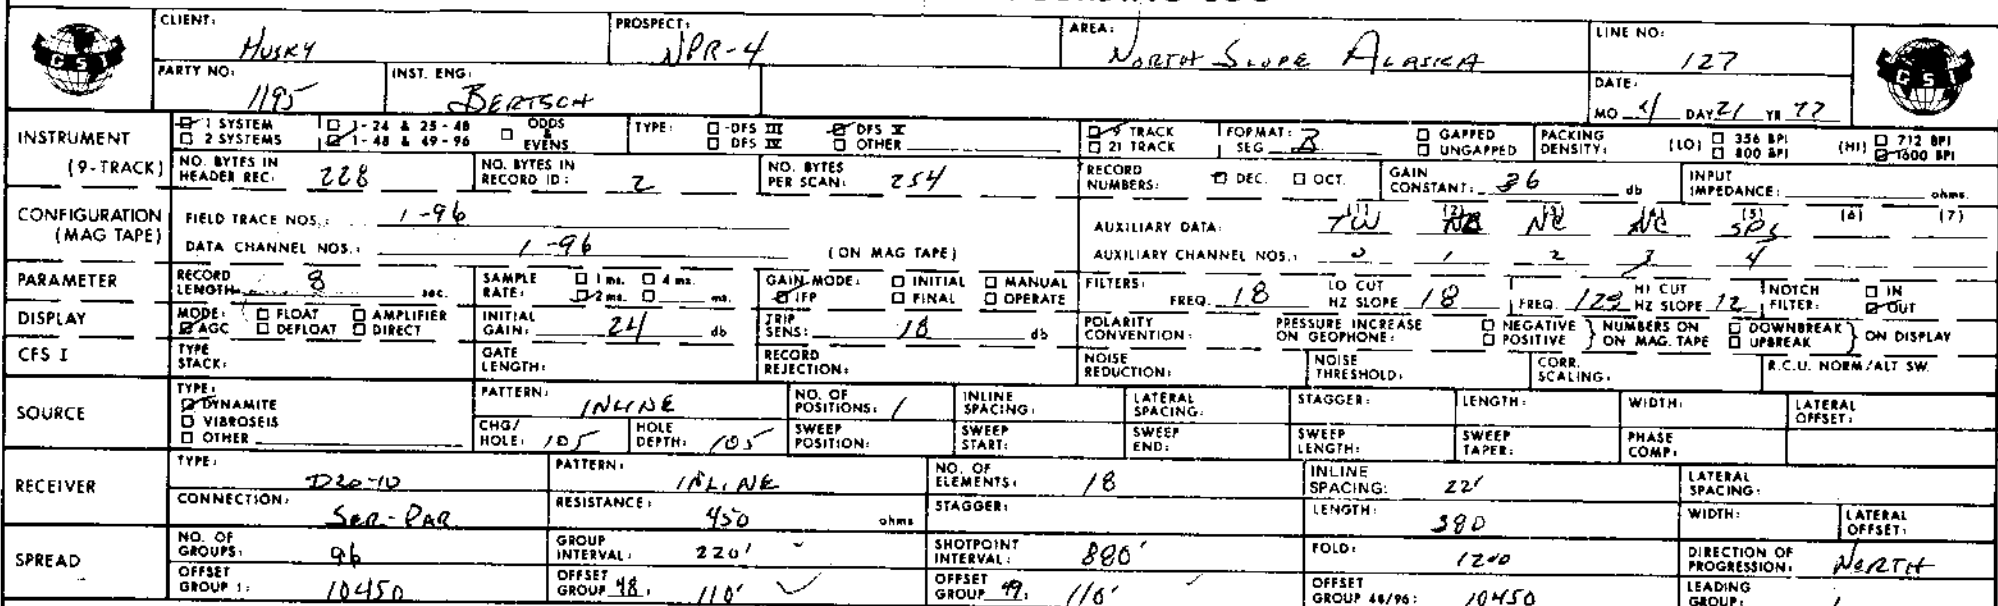 CLIENT: HUSKY PROSPECT: NPR-4 AREA: NORTH SLOPE ALASKA LINE NO: 127
GSI
PARTY NO: 1195 INST. ENG: BERTSCH DATE: MO 4 DAY 21 YR 77
GSI
INSTRUMENT (9-TRACK)
☑ 1 SYSTEM ☐ 1-24 & 25-48 ☐ ODDS & EVENS TYPE: ☐ DFS III ☑ DFS V ☑ 9 TRACK FORMAT: SEG B ☐ GAPPED PACKING DENSITY: (LO) ☐ 356 BPI (HI) ☐ 712 BPI
☐ 2 SYSTEMS ☑ 1-48 & 49-96 ☐ DFS IV ☐ OTHER ☐ 21 TRACK ☐ UNGAPPED ☐ 800 BPI ☑ 1600 BPI
NO. BYTES IN HEADER REC: 228 NO. BYTES IN RECORD ID: 2 NO. BYTES PER SCAN: 254 RECORD NUMBERS: ☑ DEC. ☐ OCT. GAIN CONSTANT: 36 db INPUT IMPEDANCE: ohms.
CONFIGURATION (MAG TAPE)
FIELD TRACE NOS.: 1-96 AUXILIARY DATA: (1) TW (2) (3) NC (4) NC (5) SPS (6) (7)
DATA CHANNEL NOS.: 1-96 (ON MAG TAPE) AUXILIARY CHANNEL NOS.: 0 1 2 3 4
PARAMETER
RECORD LENGTH 8 sec. SAMPLE RATE: ☐ 1 ms. ☐ 4 ms. ☑ 2 ms. ☐ ms. GAIN MODE: ☐ INITIAL ☐ MANUAL ☑ IFP ☐ FINAL ☐ OPERATE FILTERS: FREQ. 18 LO CUT HZ SLOPE 18 FREQ. HI CUT HZ SLOPE 12 NOTCH FILTER: ☐ IN ☑ OUT
DISPLAY
MODE: ☐ FLOAT ☐ AMPLIFIER ☑ AGC ☐ DEFLOAT ☐ DIRECT INITIAL GAIN: 24 db TRIP SENS: 18 db POLARITY CONVENTION: PRESSURE INCREASE ON GEOPHONE: ☐ NEGATIVE ☐ POSITIVE } NUMBERS ON ON MAG. TAPE ☐ DOWNBREAK ☐ UPBREAK } ON DISPLAY
CFS I TYPE STACK: GATE LENGTH: RECORD REJECTION: NOISE REDUCTION: NOISE THRESHOLD: CORR. SCALING: R.C.U. NORM/ALT SW.
SOURCE
TYPE: ☑ DYNAMITE ☐ VIBROSEIS ☐ OTHER
PATTERN: INLINE NO. OF POSITIONS: 1 INLINE SPACING: LATERAL SPACING: STAGGER: LENGTH: WIDTH: LATERAL OFFSET:
CHG/HOLE: 105 HOLE DEPTH: 105 SWEEP POSITION: SWEEP START: SWEEP END: SWEEP LENGTH: SWEEP TAPER: PHASE COMP:
RECEIVER
TYPE: D20-10 PATTERN: INLINE NO. OF ELEMENTS: 18 INLINE SPACING: 22' LATERAL SPACING:
CONNECTION: SER-PAR RESISTANCE: 450 ohms STAGGER: LENGTH: 380 WIDTH: LATERAL OFFSET:
SPREAD
NO. OF GROUPS: 96 GROUP INTERVAL: 220' SHOTPOINT INTERVAL: 880' FOLD: 1200 DIRECTION OF PROGRESSION: NORTH
OFFSET GROUP 1: 10450 OFFSET GROUP 48: 110' OFFSET GROUP 49: 110' OFFSET GROUP 48/96: 10450 LEADING GROUP: